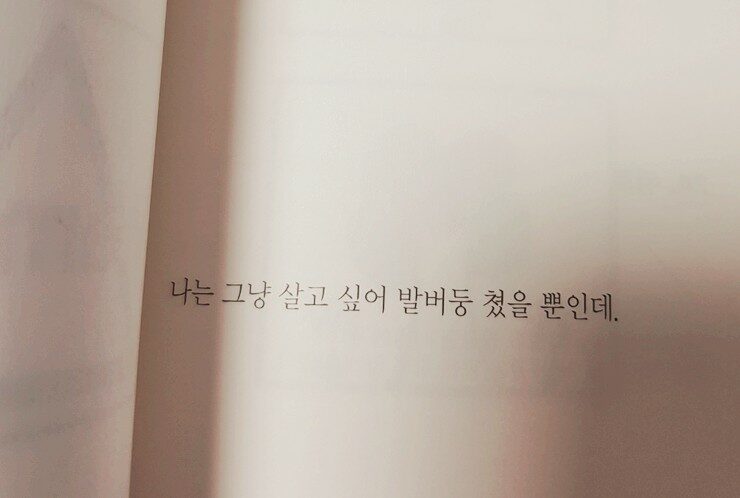 나는 그냥 살고 싶어 발버둥 쳤을 뿐인데.